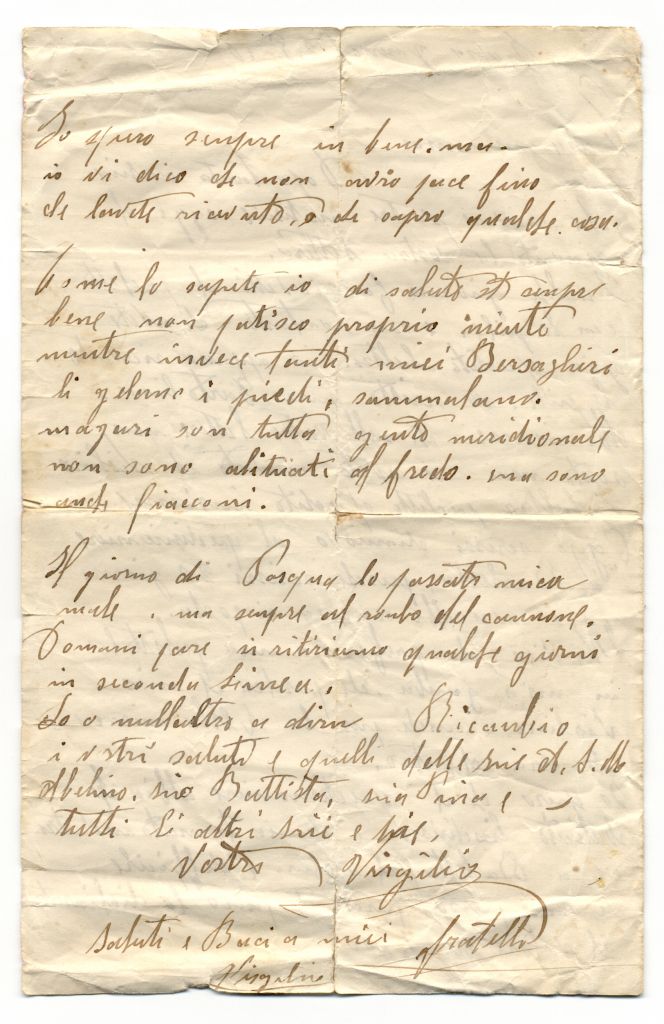 Io spero sempre in bene. ma.
io vi dico che non avrò pace fino
che lavete ricevuto, o che sapro qualche cosa.
Come lo sapete io di saluto sto sempre
bene non patisco proprio niente
mentre invece tanti miei Bersaglieri
li gelano i piedi, sammalano.
magari son tutta gente meridionale
non sono abituati al fredo. ma sono
anche fiacconi.
Il giorno di Pasqua lo passato mica
male. ma sempre al rombo del cannone.
Domani pare si ritiriamo qualche giorni
in seconda Linea.
Io o nullaltro a dirvi Ricambio
i vostri saluto e quelli delle zie
Abelino. sio Battista, sia Pina e
tutti li altri sii e sie,
Vostro Virgilio
Saluti e Baci a miei fratello
Virgilio